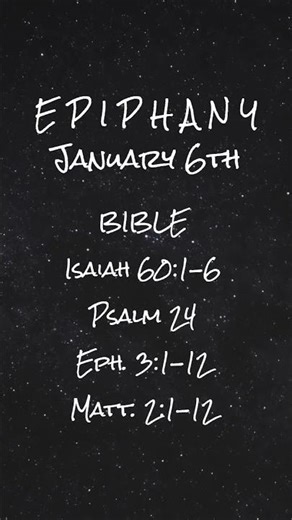 EPIPHANY
January 6th
BIBLE
Isaiah 60:1-6
Psalm 24
Eph. 3:1-12
Matt. 2:1-12